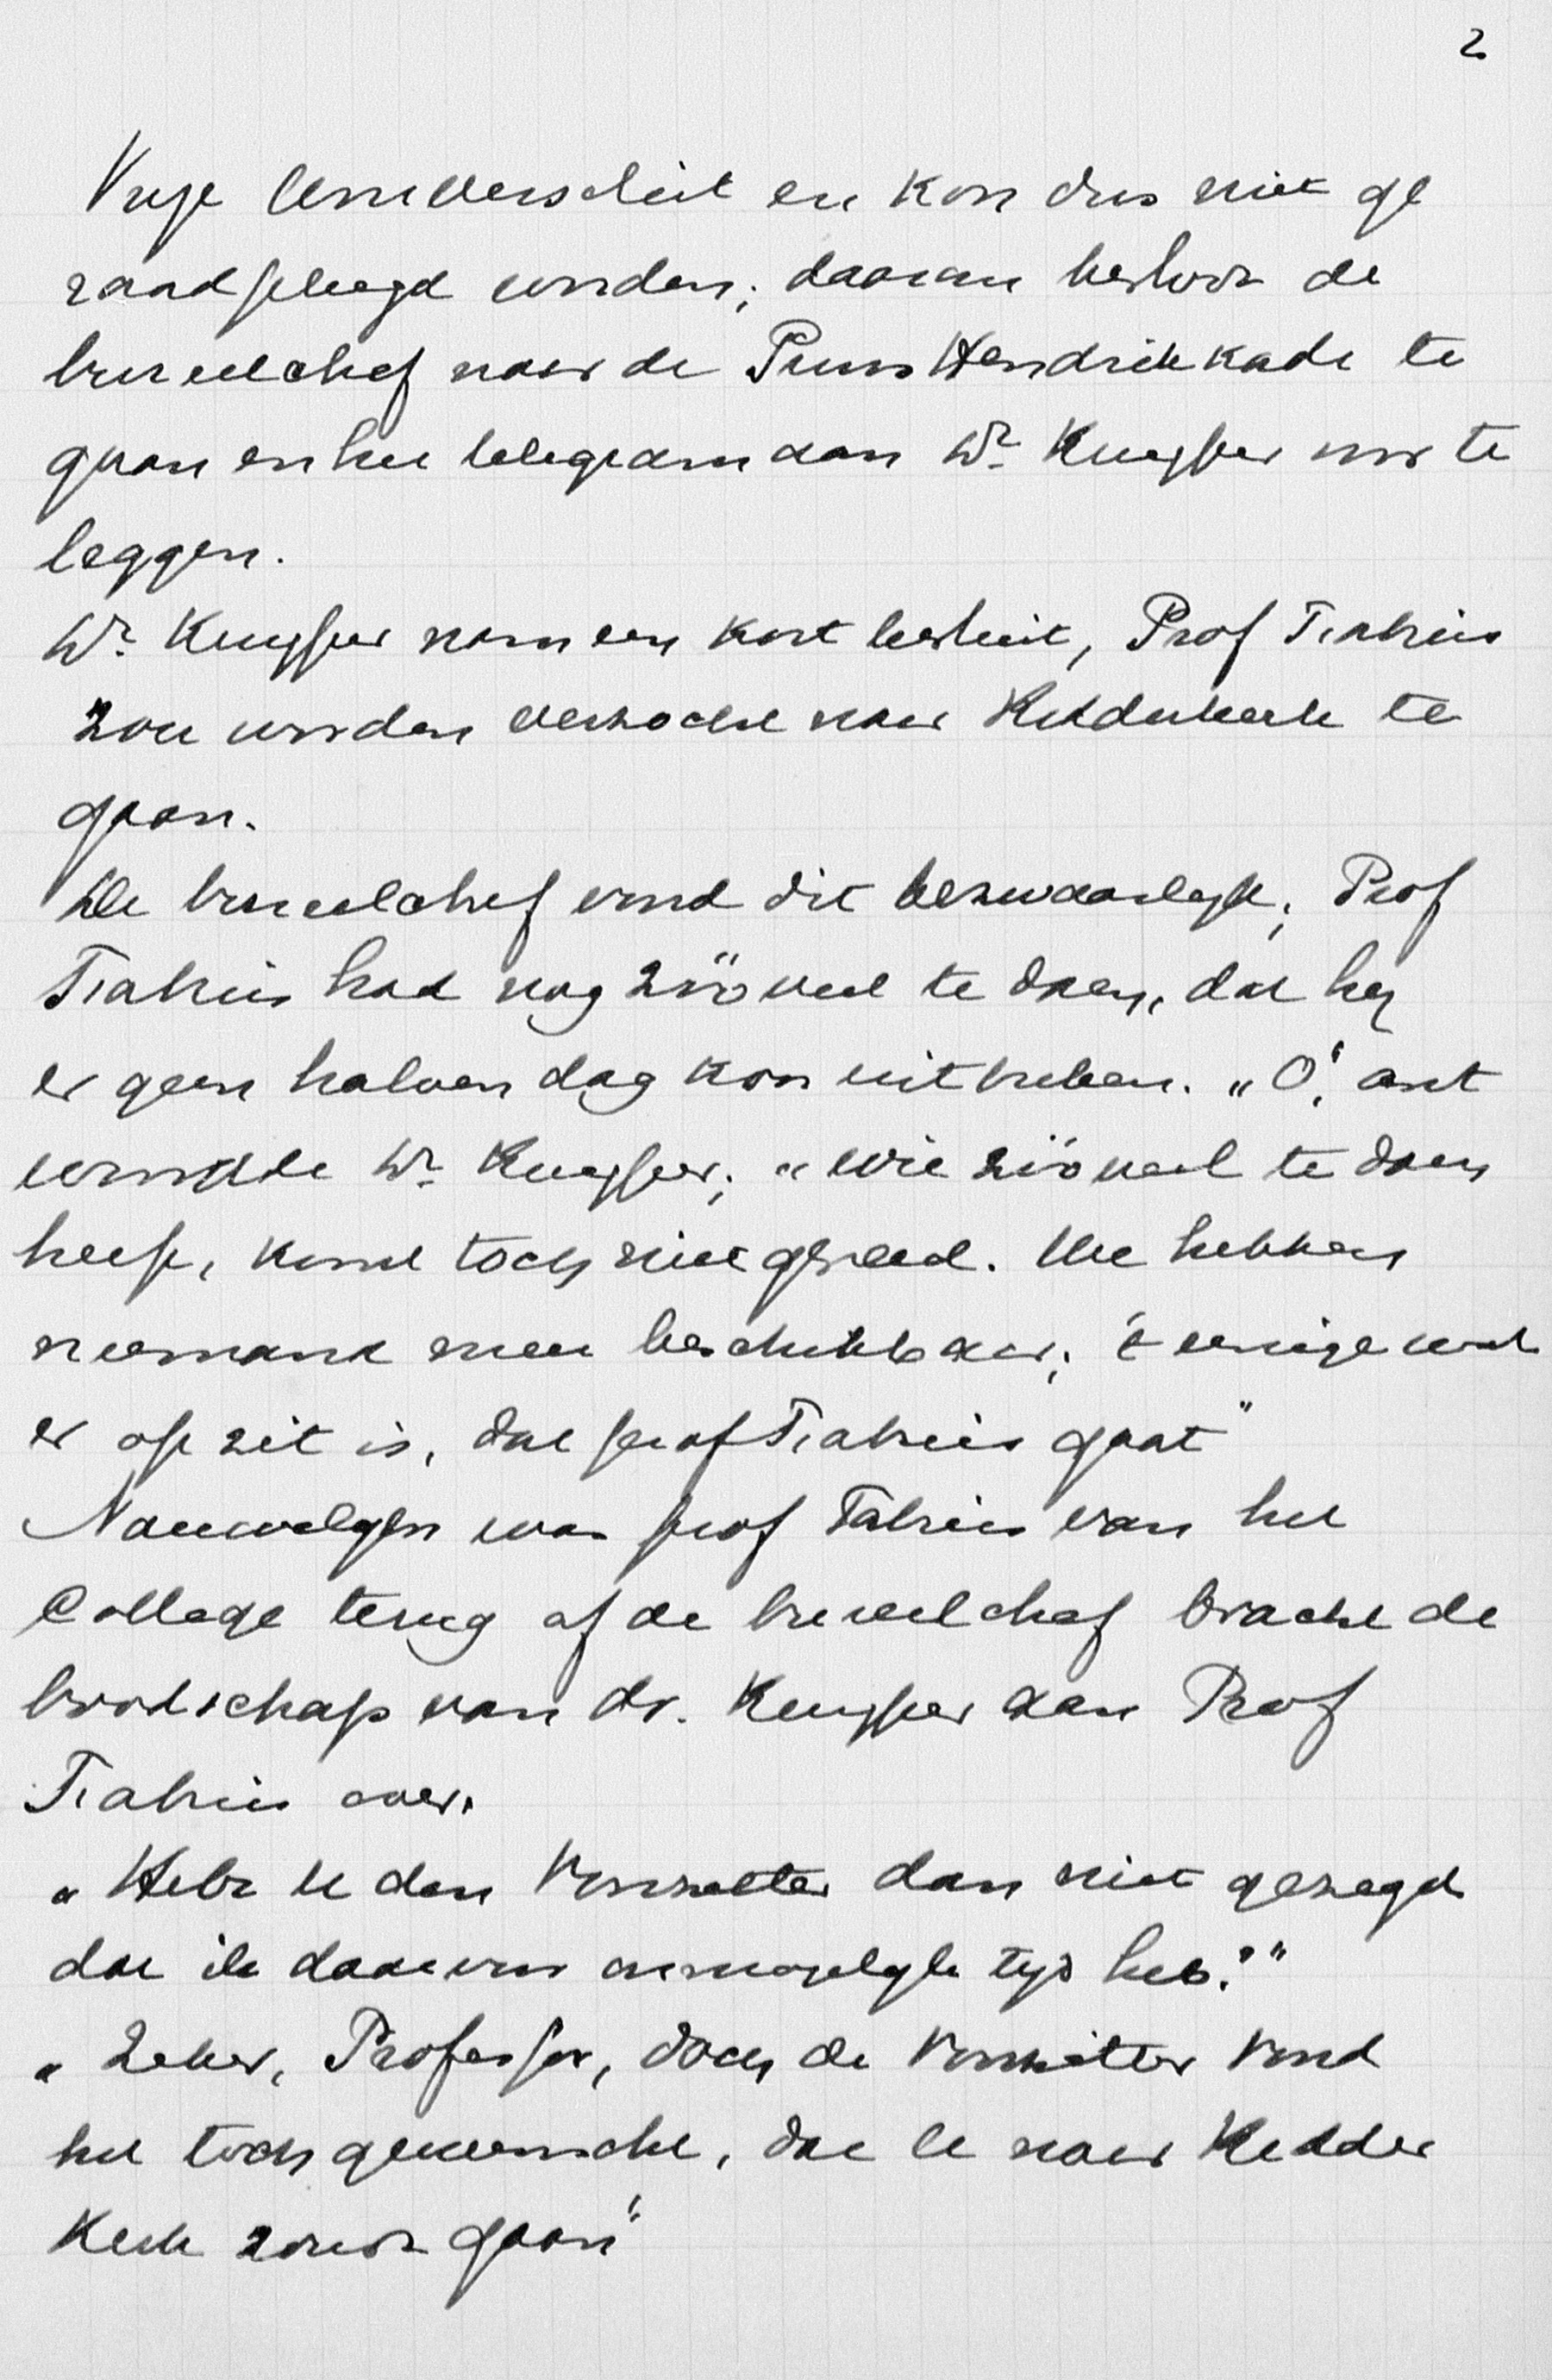 2
Vrije Universiteit en kon dus niet ge
raadpleegd worden; daarom besloot de
bureelchef naar de Prins Hendrikkade te
gaan en het telegram aan Dr. Kuyper voor te
leggen.
Dr. Kuyper nam een kort besluit, Prof Fabius
zou worden verzocht naar Ridderkerk te
gaan.
De bureelchef vond dit bezwaarlijk; Prof
Fabius had nog zóó veel te doen, dat hij
er geen halven dag kon uitbreken. „O", ant
woordde Dr. Kuyper; „wie zóó veel te doen
heeft, komt toch niet gereed. We hebben
niemand meer beschikbaar; 't eenige wat
er op zit is, dat prof Fabius gaat"
Nauwelijks was prof Fabius van het
College terug of de bureelchef bracht de
boodschap van dr. Kuyper aan Prof
Fabius over.
„Hebt U den Voorzitter dan niet gezegd
dat ik daarvoor onmogelijk tijd heb?"
„Zeker, Professor, doch de Voorzitter vond
het toch gewenscht, dat U naar Ridder
kerk zoudt gaan"